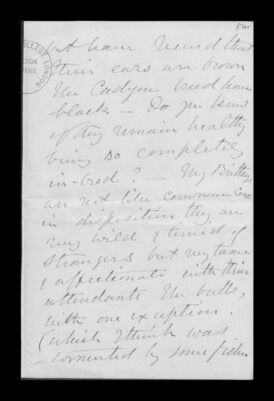 but have heard that
their ears are brown
The Cadyon breed have
black — Do you know
if they remain healthy
being so completely
in-bred? — My British
are not like common Cows
in disposition they are
very wild & timid of
strangers but very tame
& affectionate with their
attendants The bulls,
with one exception.
(which I think was
tormented by some